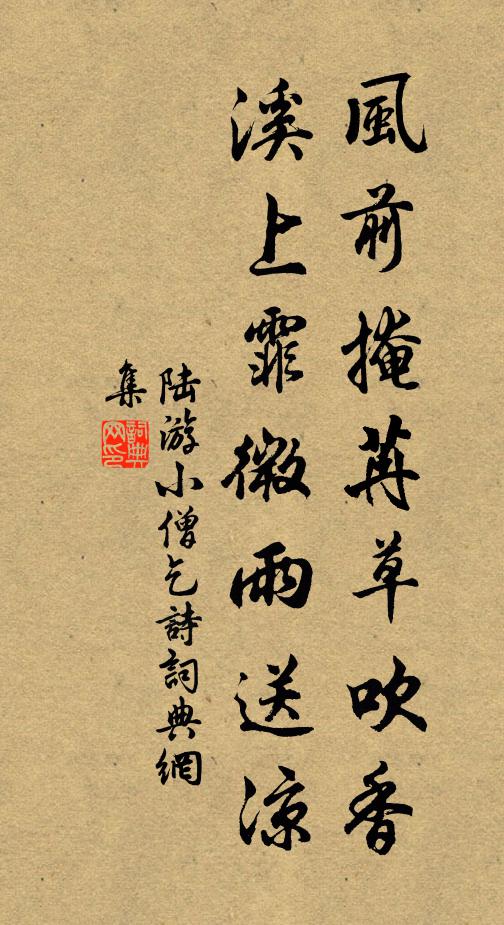 風前掩苒草吹香
溪上霏微雨送涼
陆游小僧乞詩詞典網
集
詞典
网印